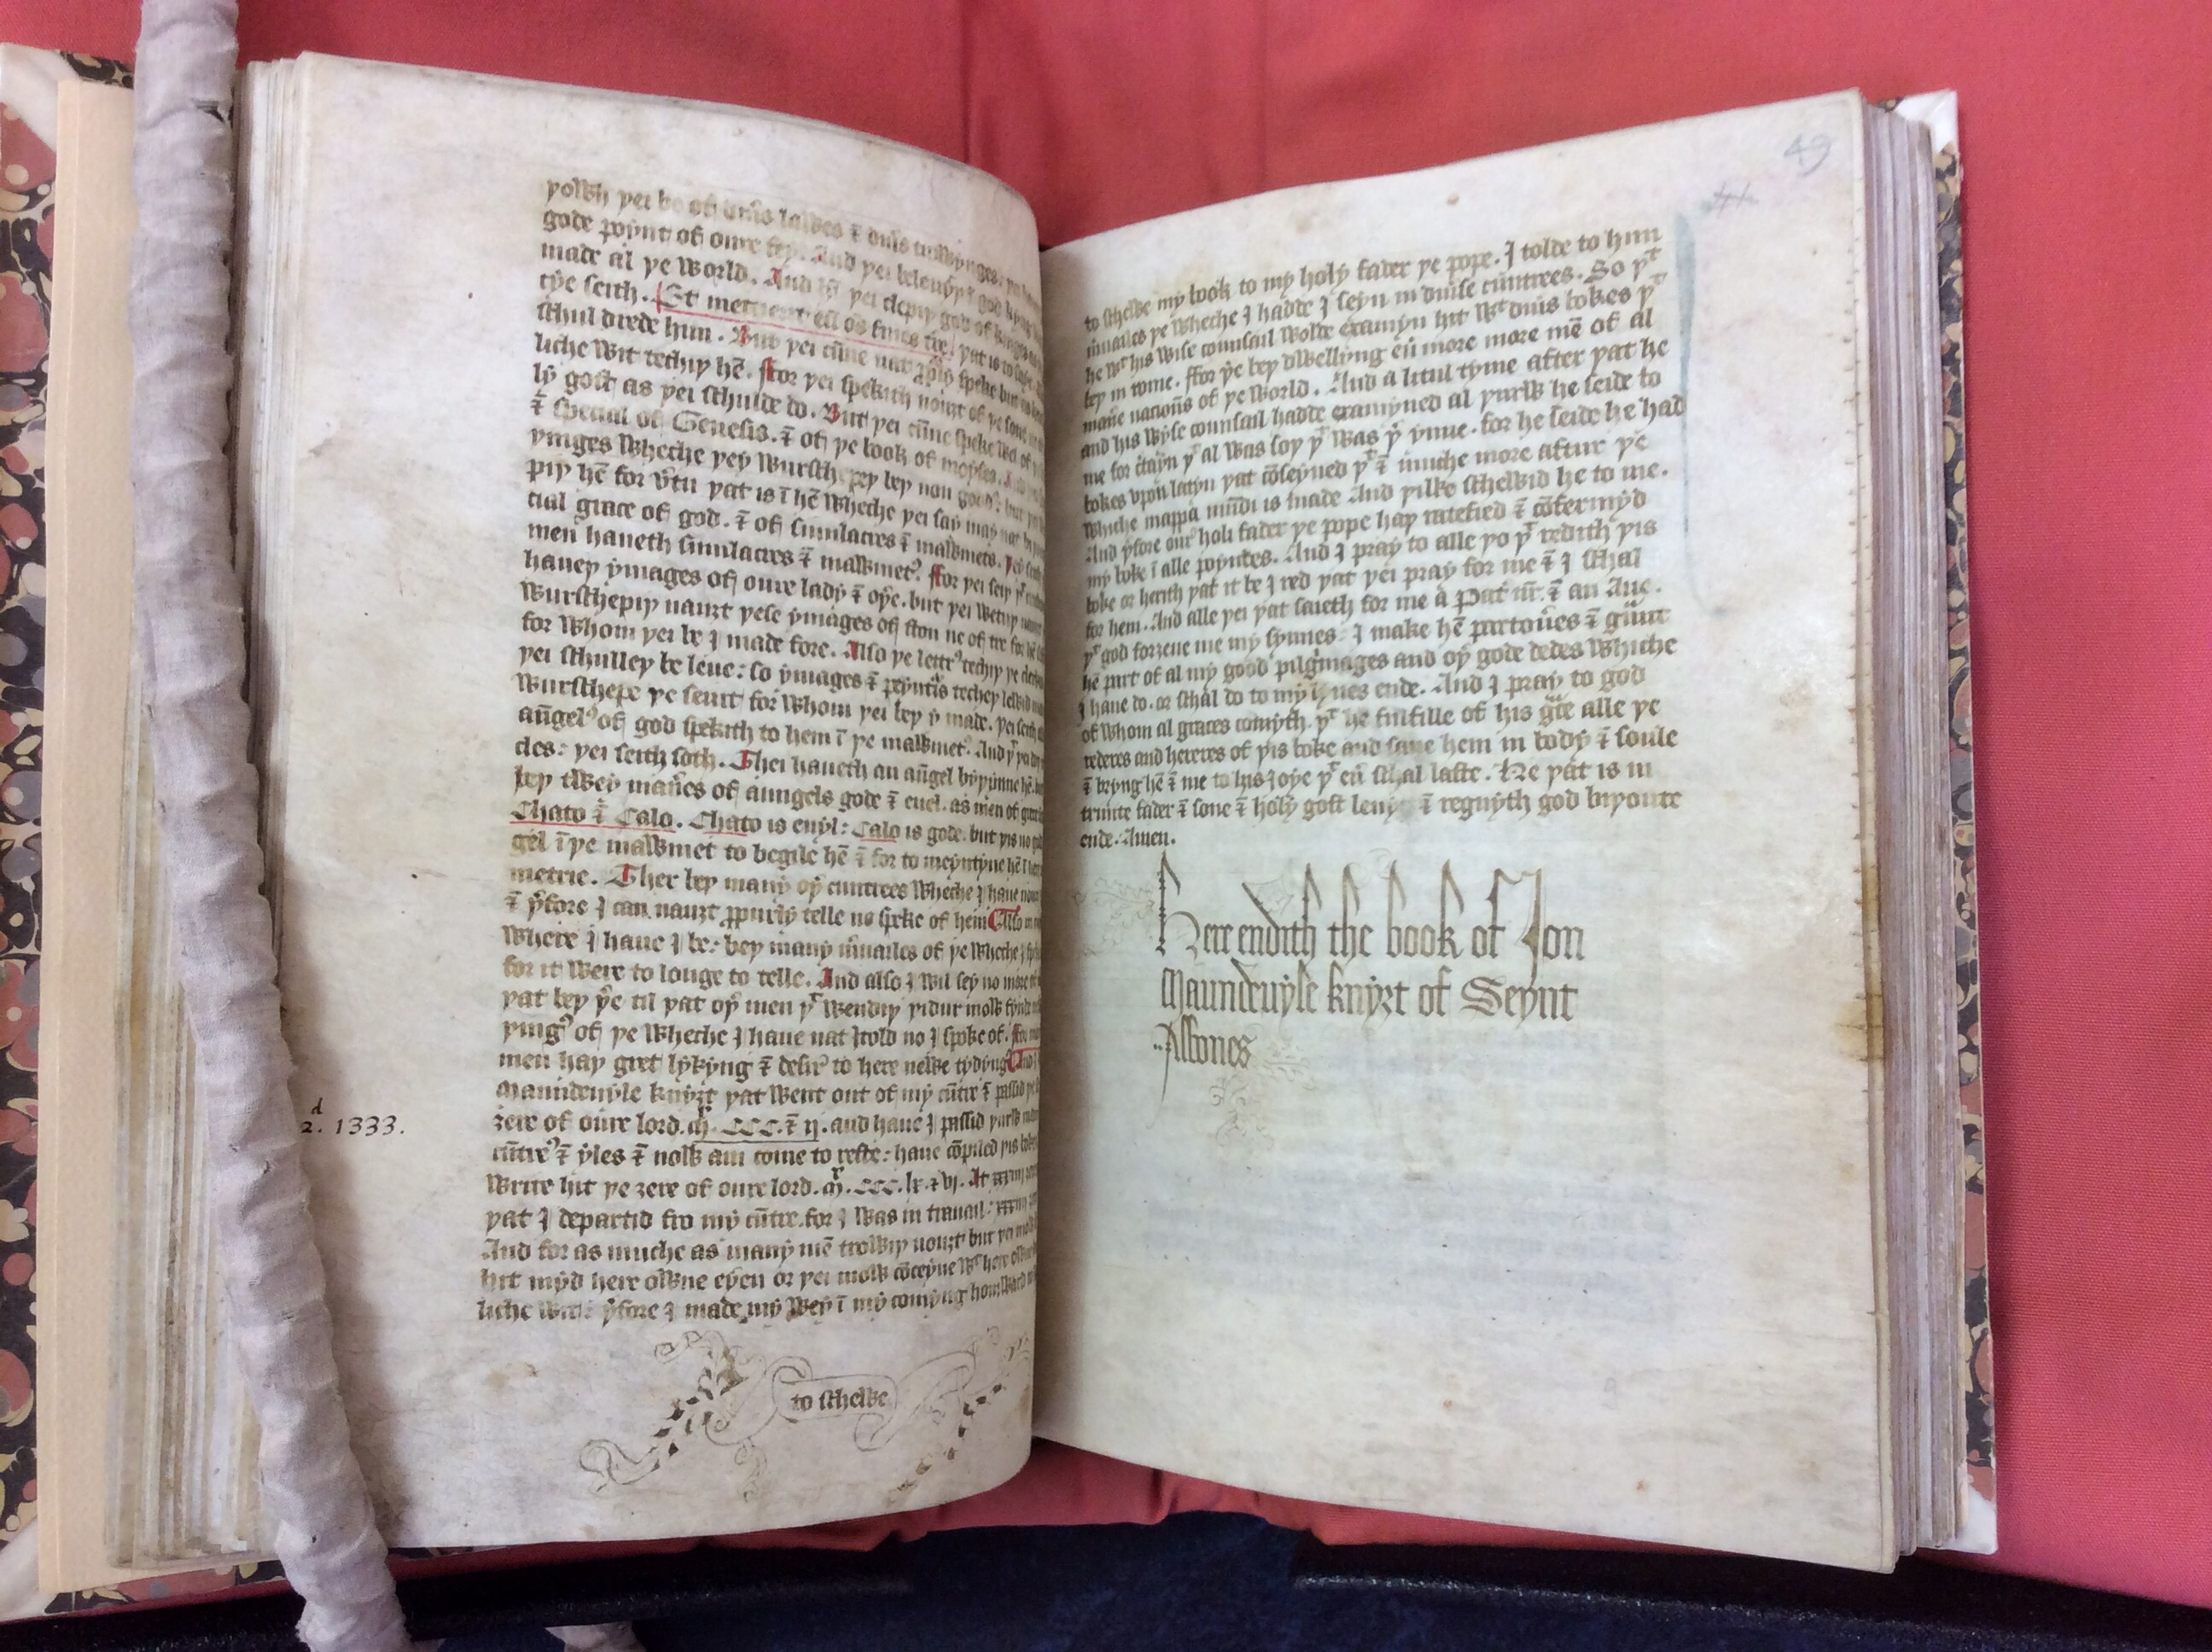 þowh þei be of diu̅s lawes ⁊ diu̅s
gode poynt of oure fey. And þei beleuyþ ī god
made al þe world. And þei clepiþ god of kynges
tye seith. Et metuent eu̅ oe̅s fines tr̅e. þat is to saye
schul drede him. But þei cu̅ne nat speke but
liche wit techiþ he̅. ffor þei spekith nouȝt of þe sone
ly gost as þei schulde do. But þei cu̅ne speke wel of
⁊ special of Genesis. ⁊ of þe book of moyses. And
þinges wheche þey wurschepeþ beþ non goddꝭ: but
piþ he̅ for v̅tu þat is ī he̅ wheche þei say may nat be
cial grace of god. ⁊ of simulacres ⁊ mawmets.
men haueth simulacres ⁊ mawmetꝭ. ffor þei seiþ þᵗ
haueþ ymages of oure lady ⁊ oþe. but þei weteþ
wurschepiþ nauȝt þese ymages of ston ne of tre for
for whom þei be j made fore. Also þe lettrꝭ techiþ þe
þei schulleþ be leue: so ymages ⁊ peyntis techeþ
wurschepe þe seint for whom þei beþ y made. þei seith
au̅gelꝭ of god spekith to hem ī þe mawmetꝭ. And
cles: þei seith soth. Thei haueth an au̅gel byþinne he̅.
beþ twey man̅es of aungels gode ⁊ euel. as men of
Chato ⁊ Calo. Chato is euyl: Calo is gode. but þis
gel ī þe mawmet to begile he̅ ⁊ for to meyntyne he̅
metrie. Ther beþ many oþ cuntrees wheche j haue
⁊ þ̅fore j can nauȝt ꝓpurly telle no speke of hem Also
where j haue j be: beþ many m̅uailes of þe wheche j
for it were to longe to telle. And also j wil sey no more
þat beþ þe̅ til þat oþ men þᵗ wendiþ þidur mow fynde
þingꝭ of þe wheche j haue nat jtold no j spoke of. ffor
men haþ gret lykyng ⁊ desir to here newe tydyngꝭ And j
Maundeuyle knyȝt þat went out of my cu̅tre ⁊ passid þe
ȝere of oure lord. mˡ. CCC. ⁊ ij. and haue j passid þurw
cu̅treꝭ ⁊ yles ⁊ now am come to reste: haue co̅piled þis boke
write hit þe ȝere of oure lord. mˡ. CCC. lx. ⁊ vj. At xxxiiij
þat j departid fro my cu̅tre. for j was in trauail: xxxiiij
And for as muche as many me̅ trowiþ nouȝt but þei
hit myd here owne eyen or þei mow co̅ceyue wᵗ here owne
liche wit: þ̅fore j made my wey ī my comyng homward
to schewe
d
2. 1333.
49
to schewe my book to my holy fader þe pope. I tolde to him
m̅uailes þe wheche j hadde j seyn in diu̅se cu̅ntrees. So þᵗ
he wᵗ his wise counsail wolde examyn hit wᵗ diu̅s bokes þᵗ
beþ in rome. ffor þe̅ beþ dwellyng eu̅ more more me̅ of al
man̅e nacion̅s of þe world. And a litul tyme after þat he
and his wyse counsail hadde examyned al þurw he seide to
me for c̅tayn þᵗ al was soþ þᵗ was þ̅ ynne. for he seide he had
bokes vpon latyn þat co̅teyned þᵗ ⁊ muche more aftur þe
whiche mappa mu̅di is made And þilke schewid he to me.
And þ̅fore our holi fader þe pope haþ ratefied ⁊ co̅fermyd
my boke ī alle poyntes. And j pray to alle þo þᵗ redith þis
boke or herith þat it be j red þat þei pray for me ⁊ j schal
for hem. And alle þei þat saieth for me a Pat nr̅. ⁊ an Aue.
þᵗ god forȝeue me my synnes: j make he̅ partou̅es ⁊ grau̅t
he̅ part of al my good pilg̅mages and oþ gode dedes whiche
j haue do. or schal do to my lyues ende. And j pray to god
of whom al graces comyth. þᵗ he fulfille of his gr̅ce alle þe
rederes and hereres of þis boke and saue hem in body ⁊ soule
⁊ bryng he̅ ⁊ me to his joye þᵗ eu̅ schal laste. He þat is in
trinite fader ⁊ sone ⁊ holy gost leuyþ ⁊ regnyth god biþoute
ende. Amen.
Here endith the book of Jon
Maundeuyle knyȝt of Seynt
Albones